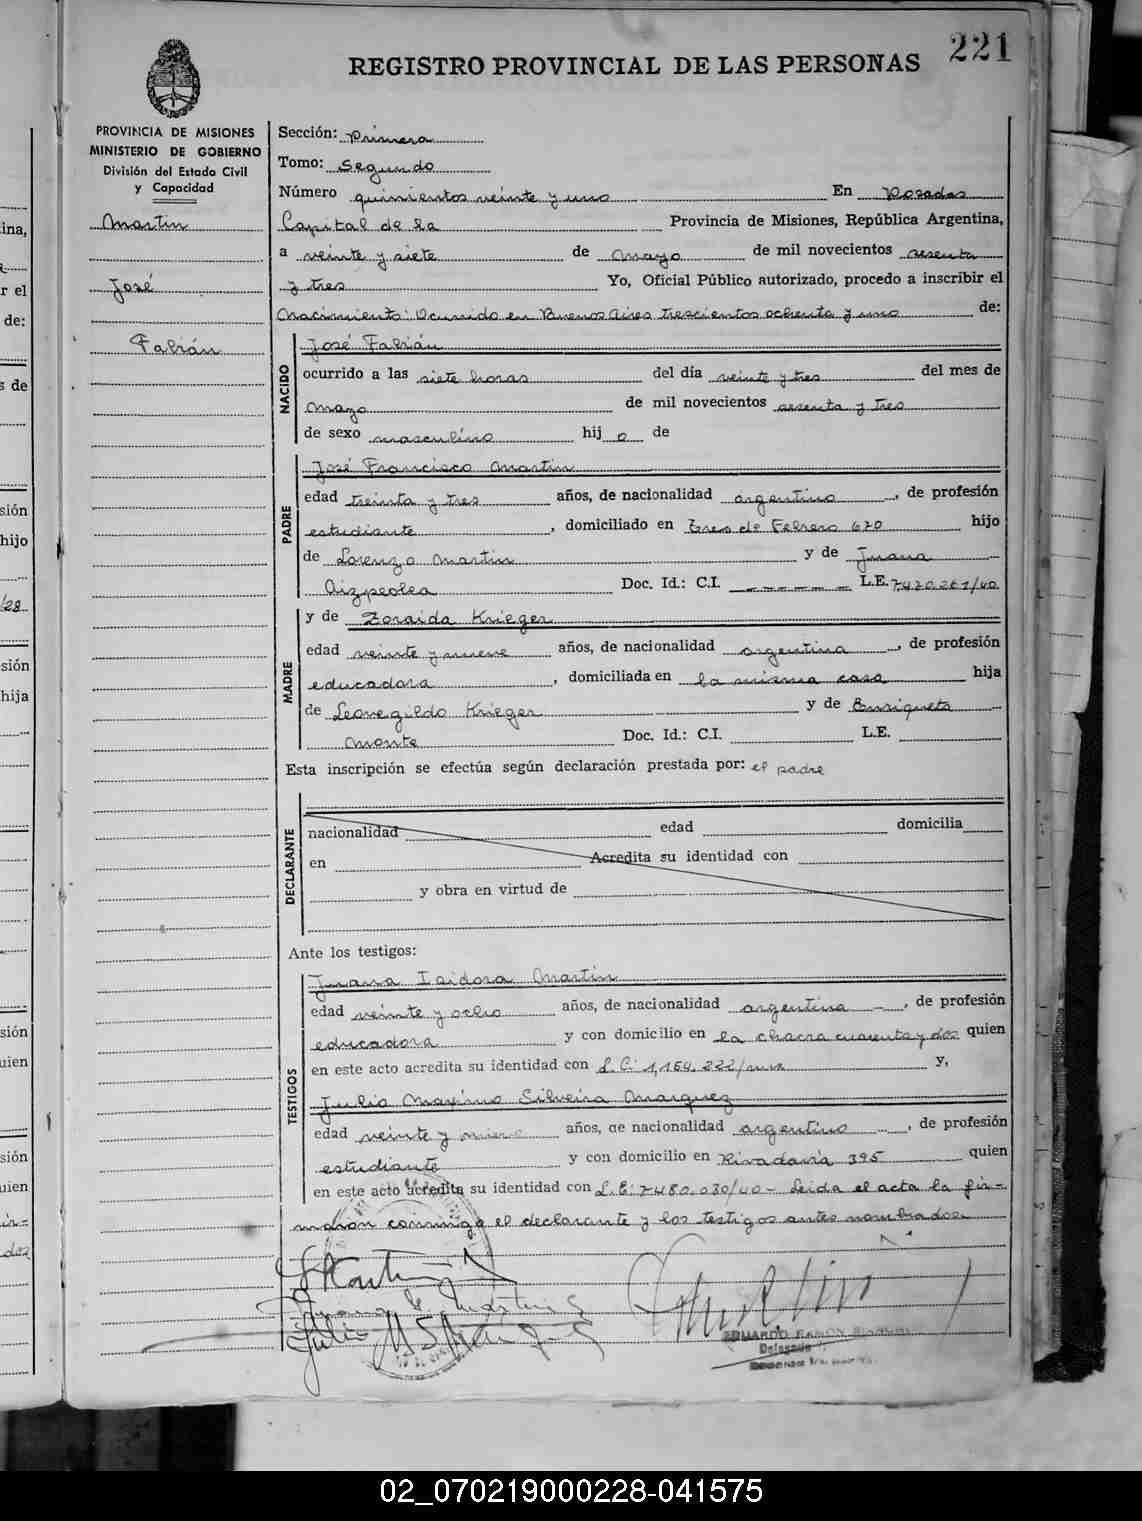 221
REGISTRO PROVINCIAL DE LAS PERSONAS
PROVINCIA DE MISIONES
MINISTERIO DE GOBIERNO
División del Estado Civil
y Capacidad
Martin
José
Fabián
Sección: Primera
Tomo: Segundo
Número quinientos veinte y uno En Posadas
Capital de la Provincia de Misiones, República Argentina,
a veinte y siete de mayo de mil novecientos sesenta
y tres Yo, Oficial Público autorizado, procedo a inscribir el
Nacimiento: Ocurrido en Buenos Aires trescientos ochenta y uno de:
NACIDO
José Fabián
ocurrido a las siete horas del día veinte y tres del mes de
mayo de mil novecientos sesenta y tres
de sexo masculino hij o de
PADRE
José Francisco Martin
edad treinta y tres años, de nacionalidad argentino, de profesión
estudiante, domiciliado en Tres de Febrero 670 hijo
de Lorenzo Martin y de Juana
Aizpeolea Doc. Id.: C.I. L.E. 7.470.261/40
MADRE
y de Zoraida Krieger
edad veinte y nueve años, de nacionalidad argentina, de profesión
educadora, domiciliada en la misma casa hija
de Leovegildo Krieger y de Enriqueta
Monte Doc. Id.: C.I. L.E.
Esta inscripción se efectúa según declaración prestada por: el padre
DECLARANTE
nacionalidad edad domicilia
en Acredita su identidad con
y obra en virtud de
Ante los testigos:
TESTIGOS
Juana Isidora Martin
edad veinte y ocho años, de nacionalidad argentina, de profesión
educadora y con domicilio en la chacra cuarenta y dos quien
en este acto acredita su identidad con L.C. 1,154.222/ y,
Julio Maximo Silveira Marquez
edad veinte y años, de nacionalidad argentino, de profesión
estudiante y con domicilio en Rivadavia 395 quien
en este acto acredita su identidad con L.E: 7480.030/40 - Leida el acta la fir-
maron conmigo el declarante y los testigos antes nombrados.
EDUARDO RAMON
Delegado
02_070219000228-041575